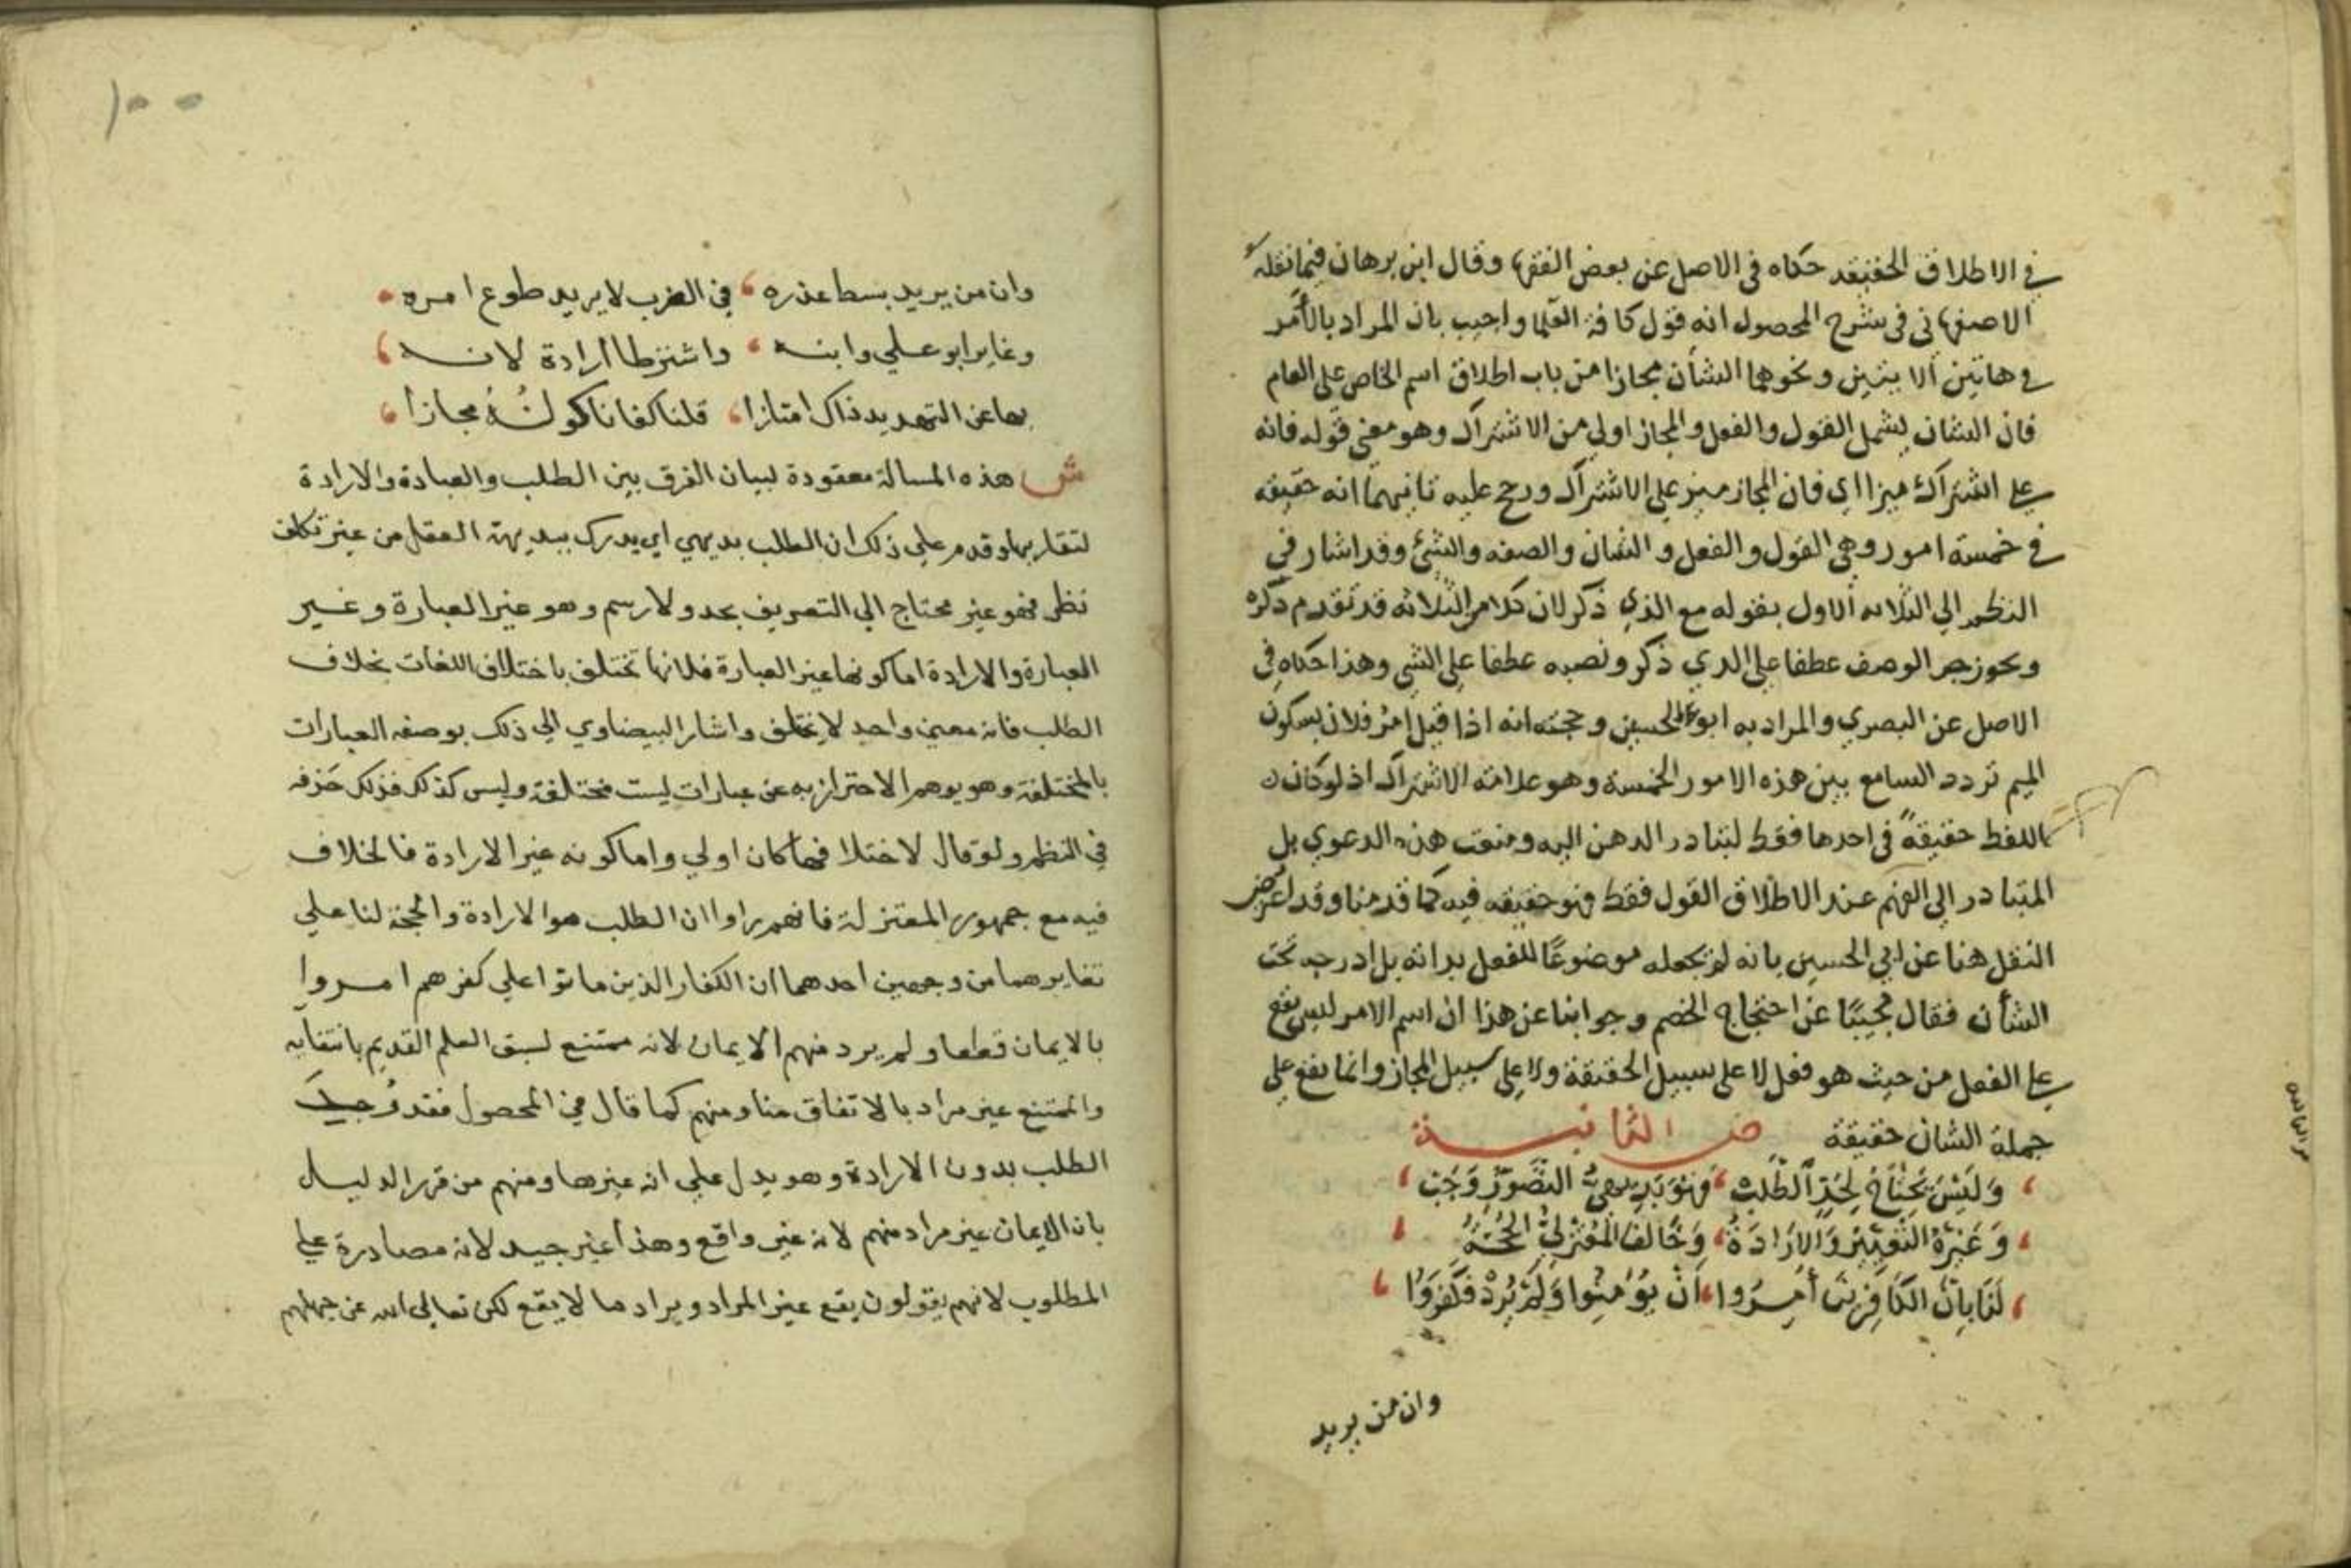 في الاطلاق الحقيقه حكاه في الاصل عن بعض الفقها وقال ابن برهان فيما نقله
الاصفهاني في شرح المحصول انه قول كافة العلما واجيب بان المراد بالأمر
في هاتين الايتين ونحوهما الشأن مجازا من باب اطلاق اسم الخاص على العام
فان الشان يشمل القول والفعل والمجاز اولي من الاشتراك وهو معني قوله فانه
علي اشتراك ميزا اي فان المجاز ميز علي الاشتراك ورجح عليه ثانيهما انه حقيقه
في خمسة امور وهي القول والفعل والشان والصفه والشئ وقد اشار في
النظم الي الثلاثه الاول بقوله مع الذي ذكر لان كلام الثلاثه قد تقدم ذكره
ويجوز جر الوصف عطفا على الدي ذكر ونصبه عطفا على الشي وهذا حكاه في
الاصل عن البصري والمراد به ابو الحسين وحجته انه اذا قيل امر فلان بسكون
الميم تردد السامع بين هذه الامور الخمسة وهو علامة الاشتراك اذ لو كان
اللفظ حقيقةً في احدها فقط لتبادر الدهن اليه ومنعت هذه الدعوي بل
المتبادر الي الفهم عند الاطلاق القول فقط فهو حقيقه فيه كما قدمنا وقد اعترض
النقل هنا عن ابي الحسين بانه لم يجعله موضوعًا للفعل بذاته بل ادرجه تحت
الشأن فقال مجيبًا عن احتجاج الخصم وجوابنا عن هذا ان اسم الامر ليس يقع
علي الفعل من حيث هو فعل لا على سبيل الحقيقة ولا علي سبيل المجاز وانما يقع علي
جملة الشان حقيقة ص الثانيــة
وَلَيْسَ يَحْتَاجُ لِحَدٍّ الطَّلَبْ فَهْوَ بَدِيهِيُّ التَّصَوُّرِ وَجَبْ
وَغَيْرُهُ التَّعْبِيْرُ وَالاِرَادَةْ وَخَالَفَ الْمُعْتَزِلِيُّ الْحُجَّةُ
لَنَا بِأَنَّ الكَافِرِيْنَ أُمِــرُوا أَنْ يُؤْمِنُوا وَلَمْ يُرِدْ فَكَفَرُوا
وان من يريد
وان من يريد بسط عذره في الضرب لا يريد طوع امره
وغاير ابو علي وابنه واشترطا ارادة لانــه
بها عن التهديد ذاك امتازا قلنا كفانا كونُهُ مجازا
ش هذه المسالة معقودة لبيان الفرق بين الطلب والعبادة والارادة
لتقاربها وقدم علي ذلك ان الطلب بديهي اي يدرك ببديهة العقل من غير تكلف
نظر فهو غير محتاج الي التعريف بحد ولا رسم وهو غير العبارة وغــير
العبارة والارادة اما كونها غير العبارة فلانها تختلف باختلاف اللغات بخلاف
الطلب فانه معني واحد لا يختلف واشار البيضاوي الي ذلك بوصفه العبارات
بالمختلفة وهو يوهم الاحتراز به عن عبارات ليست مختلفة وليس كذلك فذلك حَذفه
في النظم ولو قال لاختلافها كان اولي واما كونه غير الارادة فالخلاف
فيه مع جمهور المعتزلة فانهم راوا ان الطلب هو الارادة والحجة لنا علي
تغايرهما من وجهين احدهما ان الكفار الذين ماتوا علي كفرهم امــروا
بالايمان قطعا ولم يرد منهم الايمان لانه ممتنع لسبق العلم القديم بانتفايه
والممتنع غير مراد بالاتفاق منا ومنهم كما قال في المحصول فقد وُجــد
الطلب بدون الارادة وهو يدل علي انه غيرها ومنهم من قرر الدليــل
بان الايمان غير مراد منهم لانه غير واقع وهذا غير جيد لانه مصادرة علي
المطلوب لانهم يقولون يقع غير المراد ويراد ما لا يقع لكن تعالى الله عن جهلهم